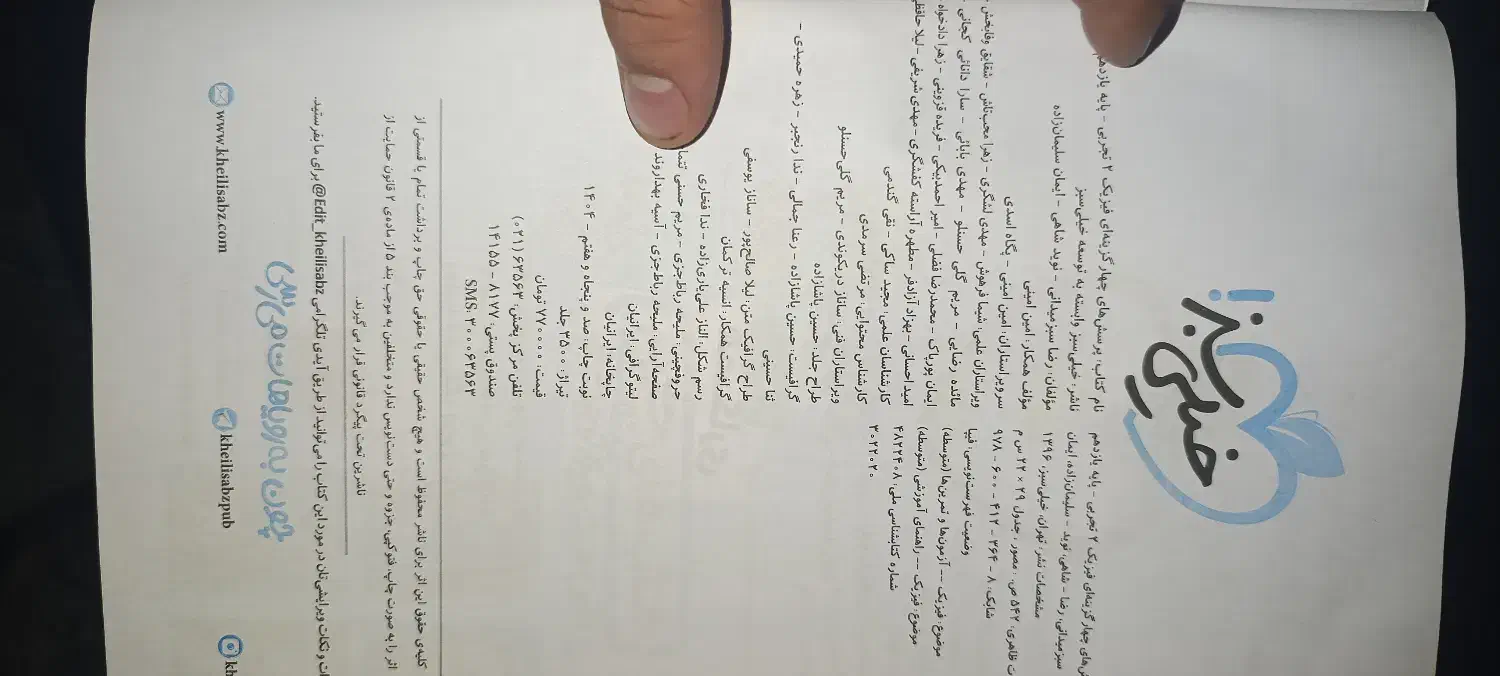 خیلی سبز
نام کتاب: پرسش‌های چهارگزینه‌ای فیزیک ۲ تجربی - پایه یازدهم
ناشر: خیلی‌سبز وابسته به توسعه خیلی‌سبز
مؤلفان: رضا سبزمیدانی - نوید شاهی - ایمان سلیمان‌زاده
مؤلف همکار: امین امینی
سرویراستاران: امین امینی - پگاه اسدی
ویراستاران علمی: شیما فرهوش - مهدی لشگری - زهرا محب‌تاش - شقایق وفابخش -
مائده رضایی - مریم گلی حسنلو - مهدی بابائی - سارا دانائی کجانی
ایمان پورپاک - محمدرضا فضلی - امیر احمدبیگی - فریده قزوینی - زهرا دادخواه
امید احسانی - بهزاد آزادفر - مطهره آراسته کفشگری - مهدی شریفی - لیلا حافظی
کارشناسان علمی: مجید ساکی - نقی گندمی
کارشناس محتوایی: مرتضی سرمدی
ویراستاران فنی: ساناز دریکوندی - مریم گلی‌حسنلو
طراح جلد: حسین پاشازاده
گرافیست: حسین پاشازاده - رعنا جمالی - ندا رنجبر - زهره حمیدی -
ثنا حسینی
طراح گرافیک متن: لیلا صالح‌پور - ساناز یوسفی
گرافیست همکار: انسیه ترکمان
رسم شکل: الناز علی‌یاری‌زاده - ندا فخاری
حروفچینی: ملیحه رباط‌جزی - مریم حسنی
صفحه‌آرایی: ملیحه رباط‌جزی - آسیه بهداروند
لیتوگرافی: ایرانیان
چاپخانه: ایرانیان
نوبت چاپ: صد و پنجاه و هفتم - ۱۴۰۴
تیراژ: ۲۵۰۰ جلد
قیمت: ۷۷۰۰۰۰ تومان
تلفن مرکز پخش: ۶۳۵۶۳ (۰۲۱)
صندوق پستی: ۸۱۷۷ - ۱۴۱۵۵
SMS: ۳۰۰۰۶۳۵۶۳
چهارگزینه‌ای فیزیک ۲ تجربی - پایه یازدهم
سبزمیدانی، رضا - شاهی، نوید - سلیمان‌زاده، ایمان
مشخصات نشر: تهران، خیلی‌سبز، ۱۳۹۶
ظاهری: ۵۴۲ ص.: مصور، جدول ۲۹ × ۲۲ س م
شابک: ۸ - ۳۶۴ - ۴۱۲ - ۶۰۰ - ۹۷۸
وضعیت فهرست‌نویسی: فیپا
موضوع: فیزیک -- آزمون‌ها و تمرین‌ها (متوسطه)
موضوع: فیزیک -- راهنمای آموزشی (متوسطه)
شماره کتابشناسی ملی: ۴۸۲۲۴۰۸
۳۰۲۲۰۲۰
کلیه‌ی حقوق این اثر برای ناشر محفوظ است و هیچ شخص حقیقی یا حقوقی حق چاپ و برداشت تمام یا قسمتی از
اثر را به صورت چاپ، فتوکپی، جزوه و حتی دست‌نویس ندارد و متخلفین به موجب بند ۵ از ماده‌ی ۲ قانون حمایت از
ناشرین تحت پیگرد قانونی قرار می گیرند.
و نکات ویرایشی‌تان در مورد این کتاب را می‌توانید از طریق آیدی تلگرامی @Edit_kheilisabz برای ما بفرستید.
www.kheilisabz.com
kheilisabzpub
kh